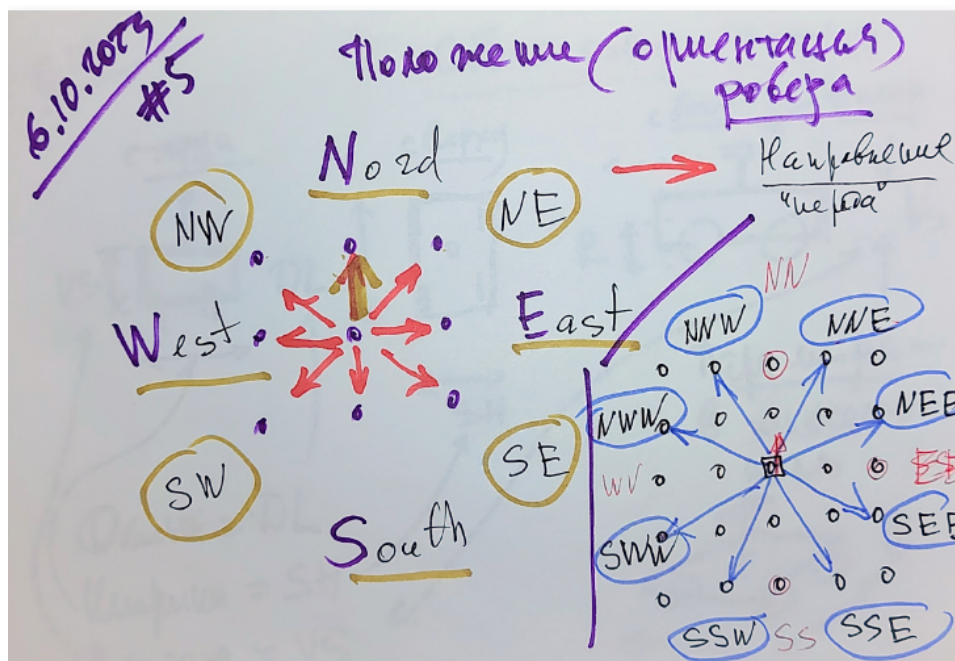 6.10.2023
#5
Положение (ориентация)
ровера
Nord
Направление
"переда"
NW
NE
West
East
SW
SE
South
NN
NNW
NNE
NWW
NEE
WV
SWW
SEE
SSW
SS
SSE